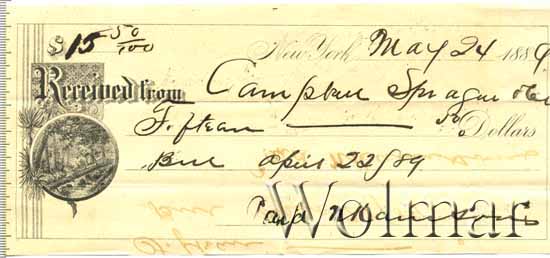 $15 50/100
New York May 24 1889
Received from Campbell Sprague
Fifteen 50 Dollars
Bill April 22/89
Wolmar